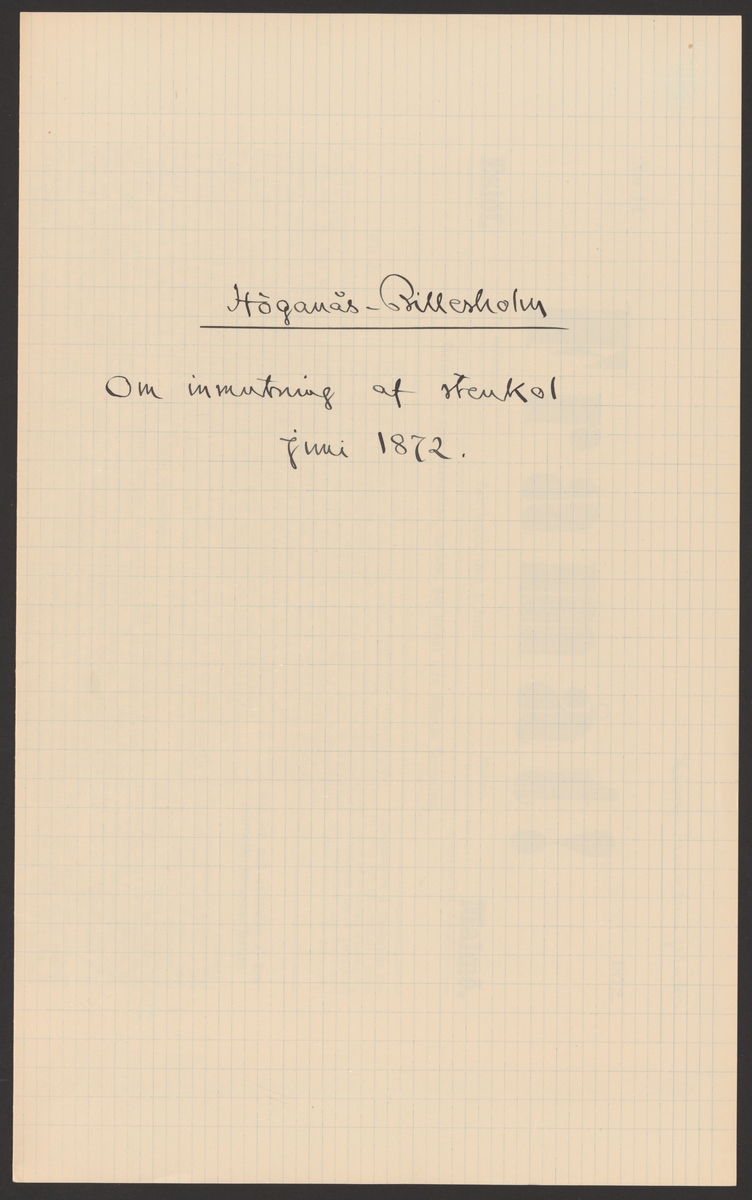 Höganäs-Billesholm
Om inmutning af stenkol
juni 1872.